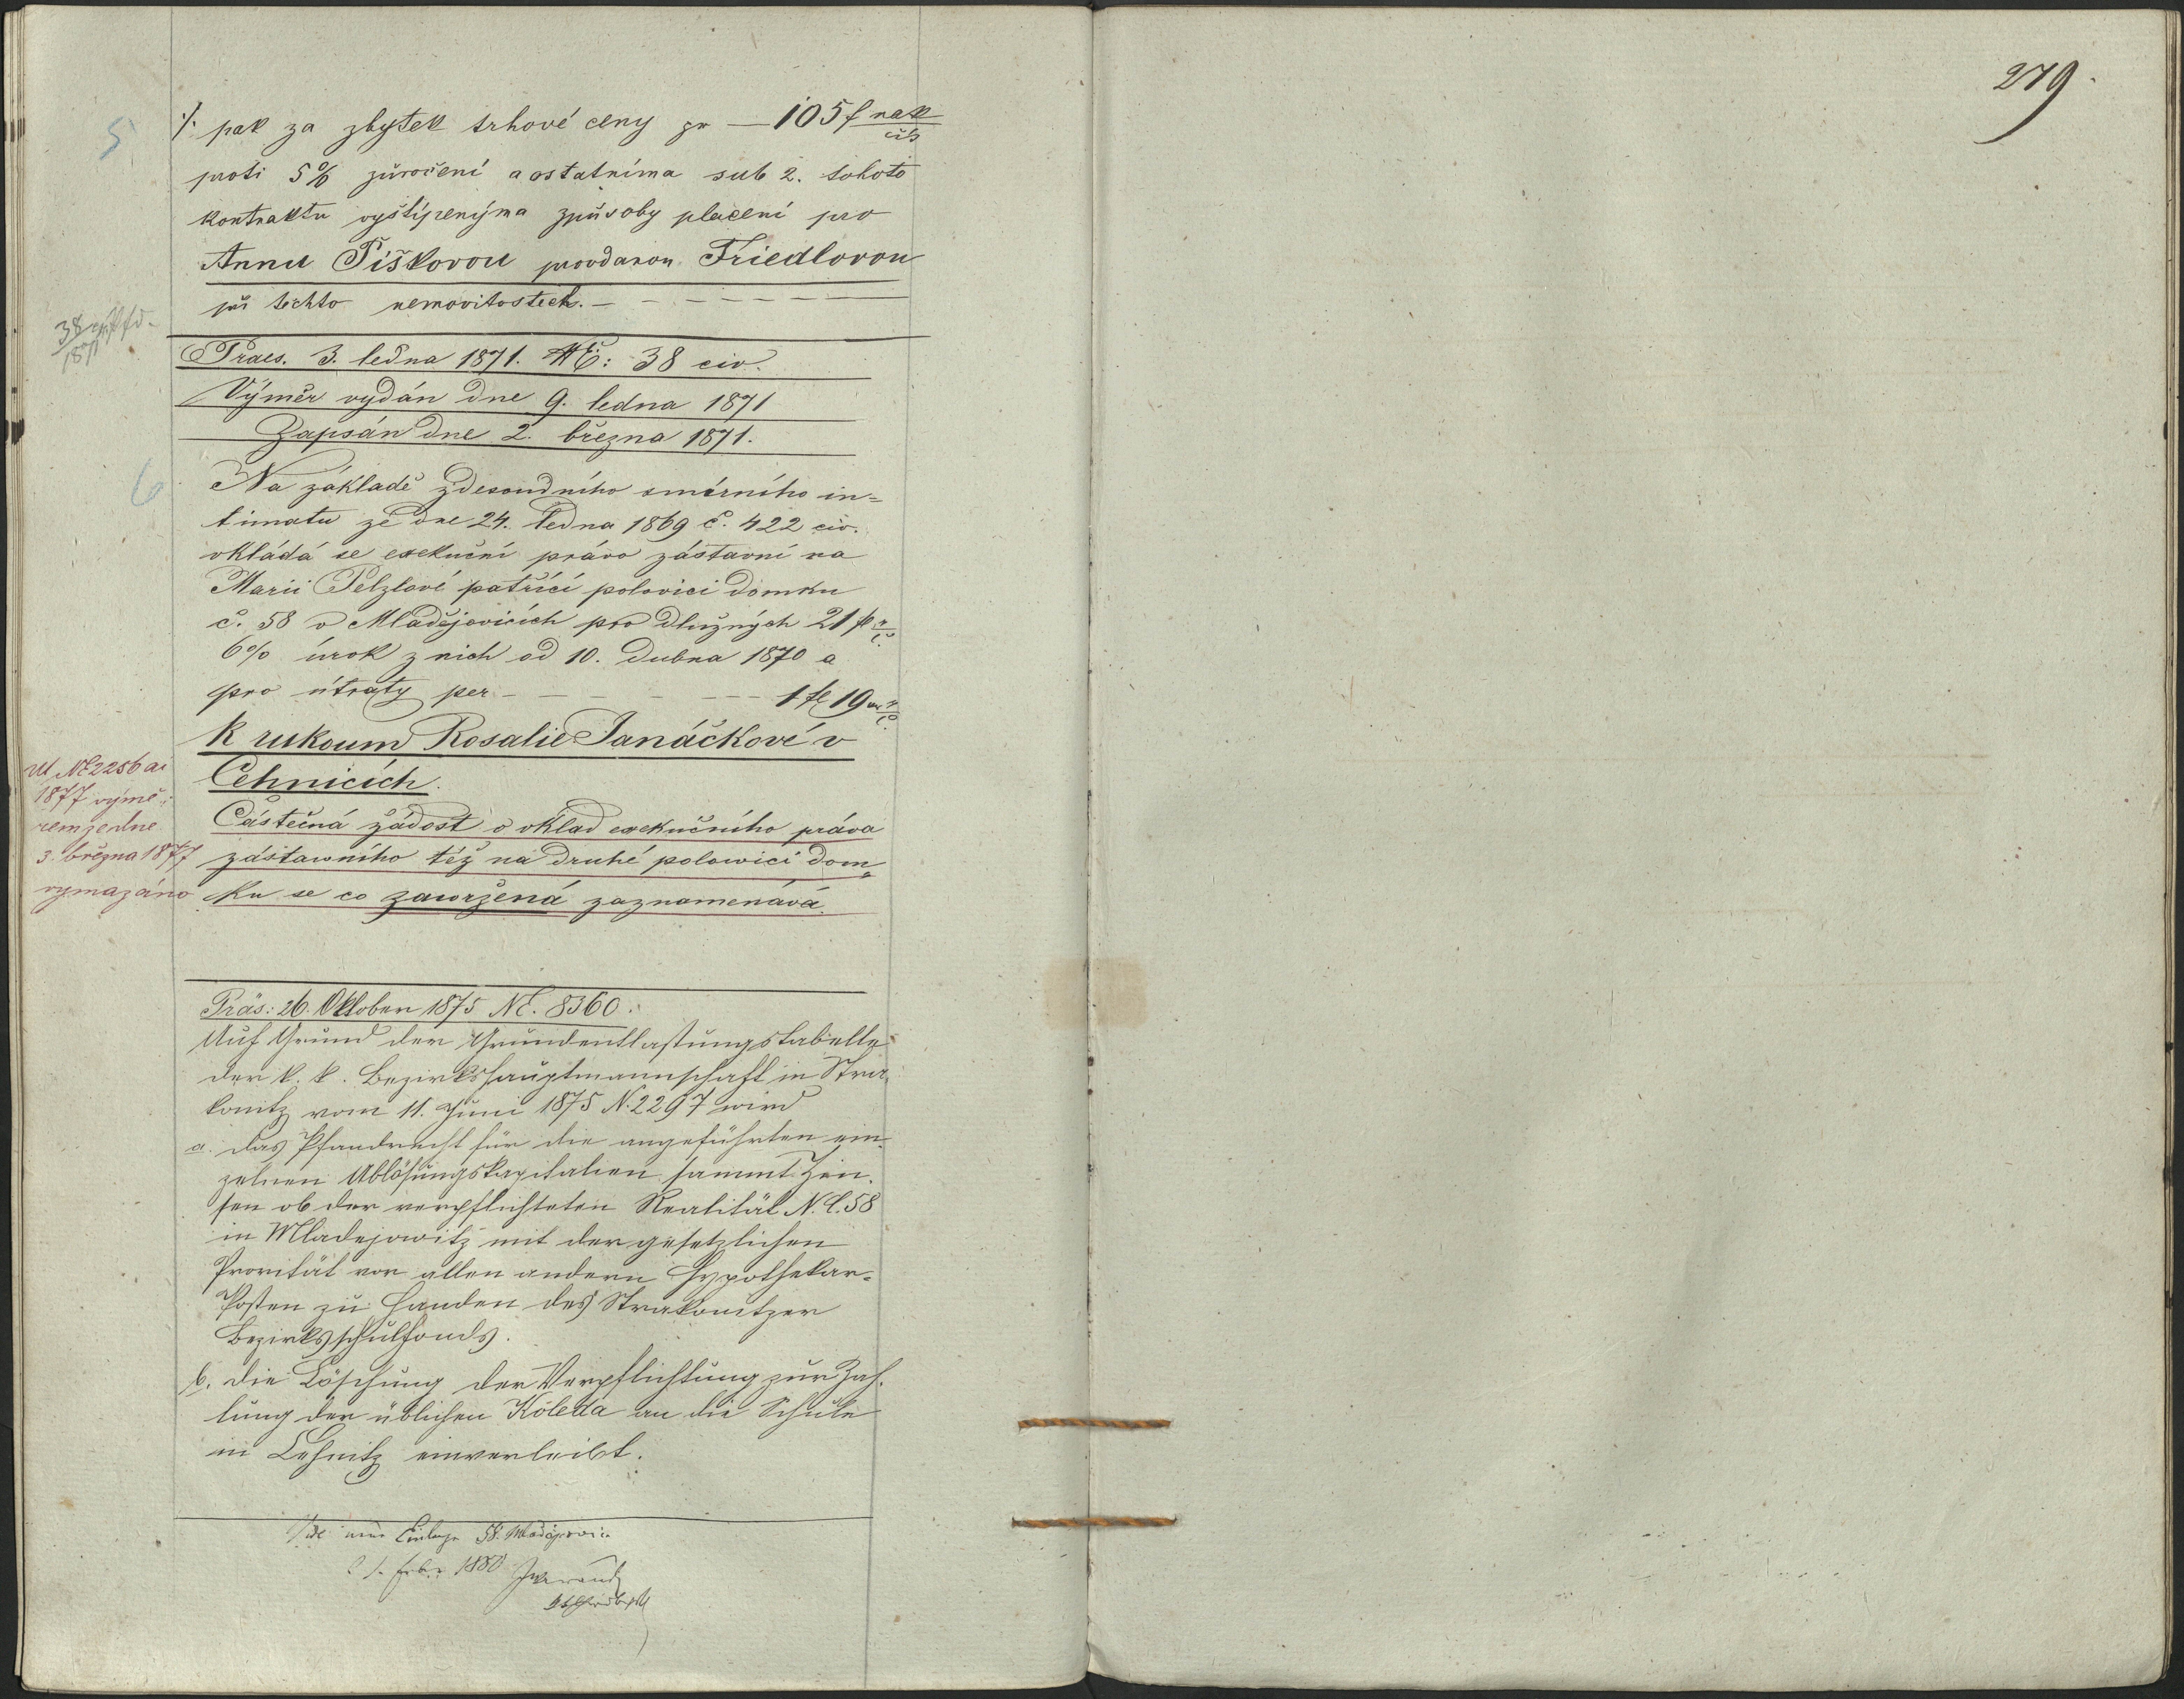 279.
5
·/· pak za zbytek trhové ceny pr — 105 f nak
čís
proti 5% zúročení a ostatníma sub 2. tohoto
kontraktu vyštípenýma způsoby placení pro
Annu Piškovou provdanou Friedlovou
při těchto nemovitostech. —
38
1871
Praes. 3. ledna 1871. NE: 38 civ.
Výměr vydán dne 9. ledna 1871
Zapsán dne 2. března 1871.
6
Na základě zdesoudního smírního in=
timatu ze dne 24. ledna 1869 č. 422 civ.
vkládá se exekuční právo zástavní na
Marii Pelzlové patřící polovici domku
č. 58 v Mladějovicích pro dlužných 21 fl
6% úrok z nich od 10. dubna 1870 a
pro útraty per — 1 fl 19
k rukoum Rosalie Janáčkové v
Cehnicích.
Částečná žádost o vklad exekučního práva
zástawního též na druhé polowici dom=
ku se co zawržená zaznamenává.
Ut NE 2256 ai
1877 výmě=
rem ze dne
3. března 1877
vymazáno
Präs: 26. Oktober 1875 NE. 8360.
Auf Grund der Grundentlastungstabelle
der k. k. Bezirkshauptmannschaft in Stra=
konitz vom 11. Juni 1875 N. 2297 wird
a. das Pfandrecht für die angeführten ein=
zelnen Ablösungskapitalien sammt Zin=
sen ob der verpflichteten Realität N. C. 58
in Mladejowitz mit der gesetzlichen
Priorität vor allen andern Hypothekar=
Posten zu Handen des Strakonitzer
Bezirksschulfonds.
b. die Löschung der Verpflichtung zur Zah=
lung der üblichen Koleda an die Schule
in Cehnitz einverleibt.
neue Einlage 58. Mladějovic
1. 1880